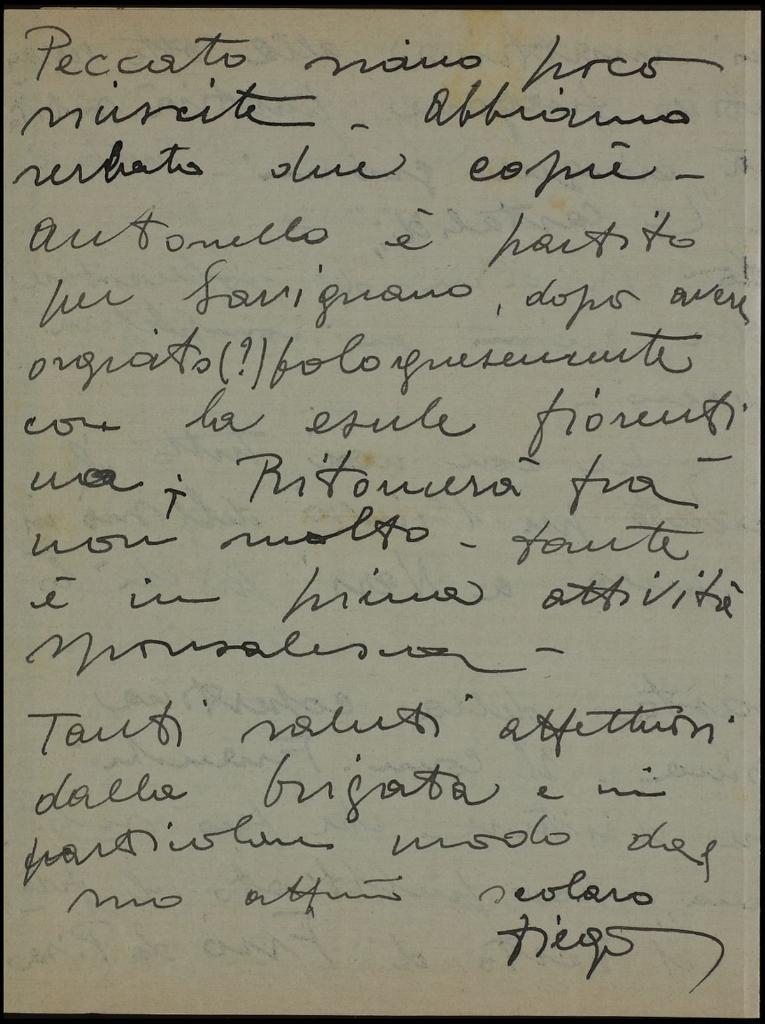 Peccato siano poco
riuscite - Abbiamo
serbato due copie -
Antonello è partito
per Savignano, dopo avere
orgiato(?) bolognesemente
con la esule fiorenti
na; Ritornerà fra
non molto - tante
è in prima attività
sponsalesca -
Tanti saluti affettuosi
dalla brigata e in
particolare modo dal
suo aff.mo scolaro
Diego